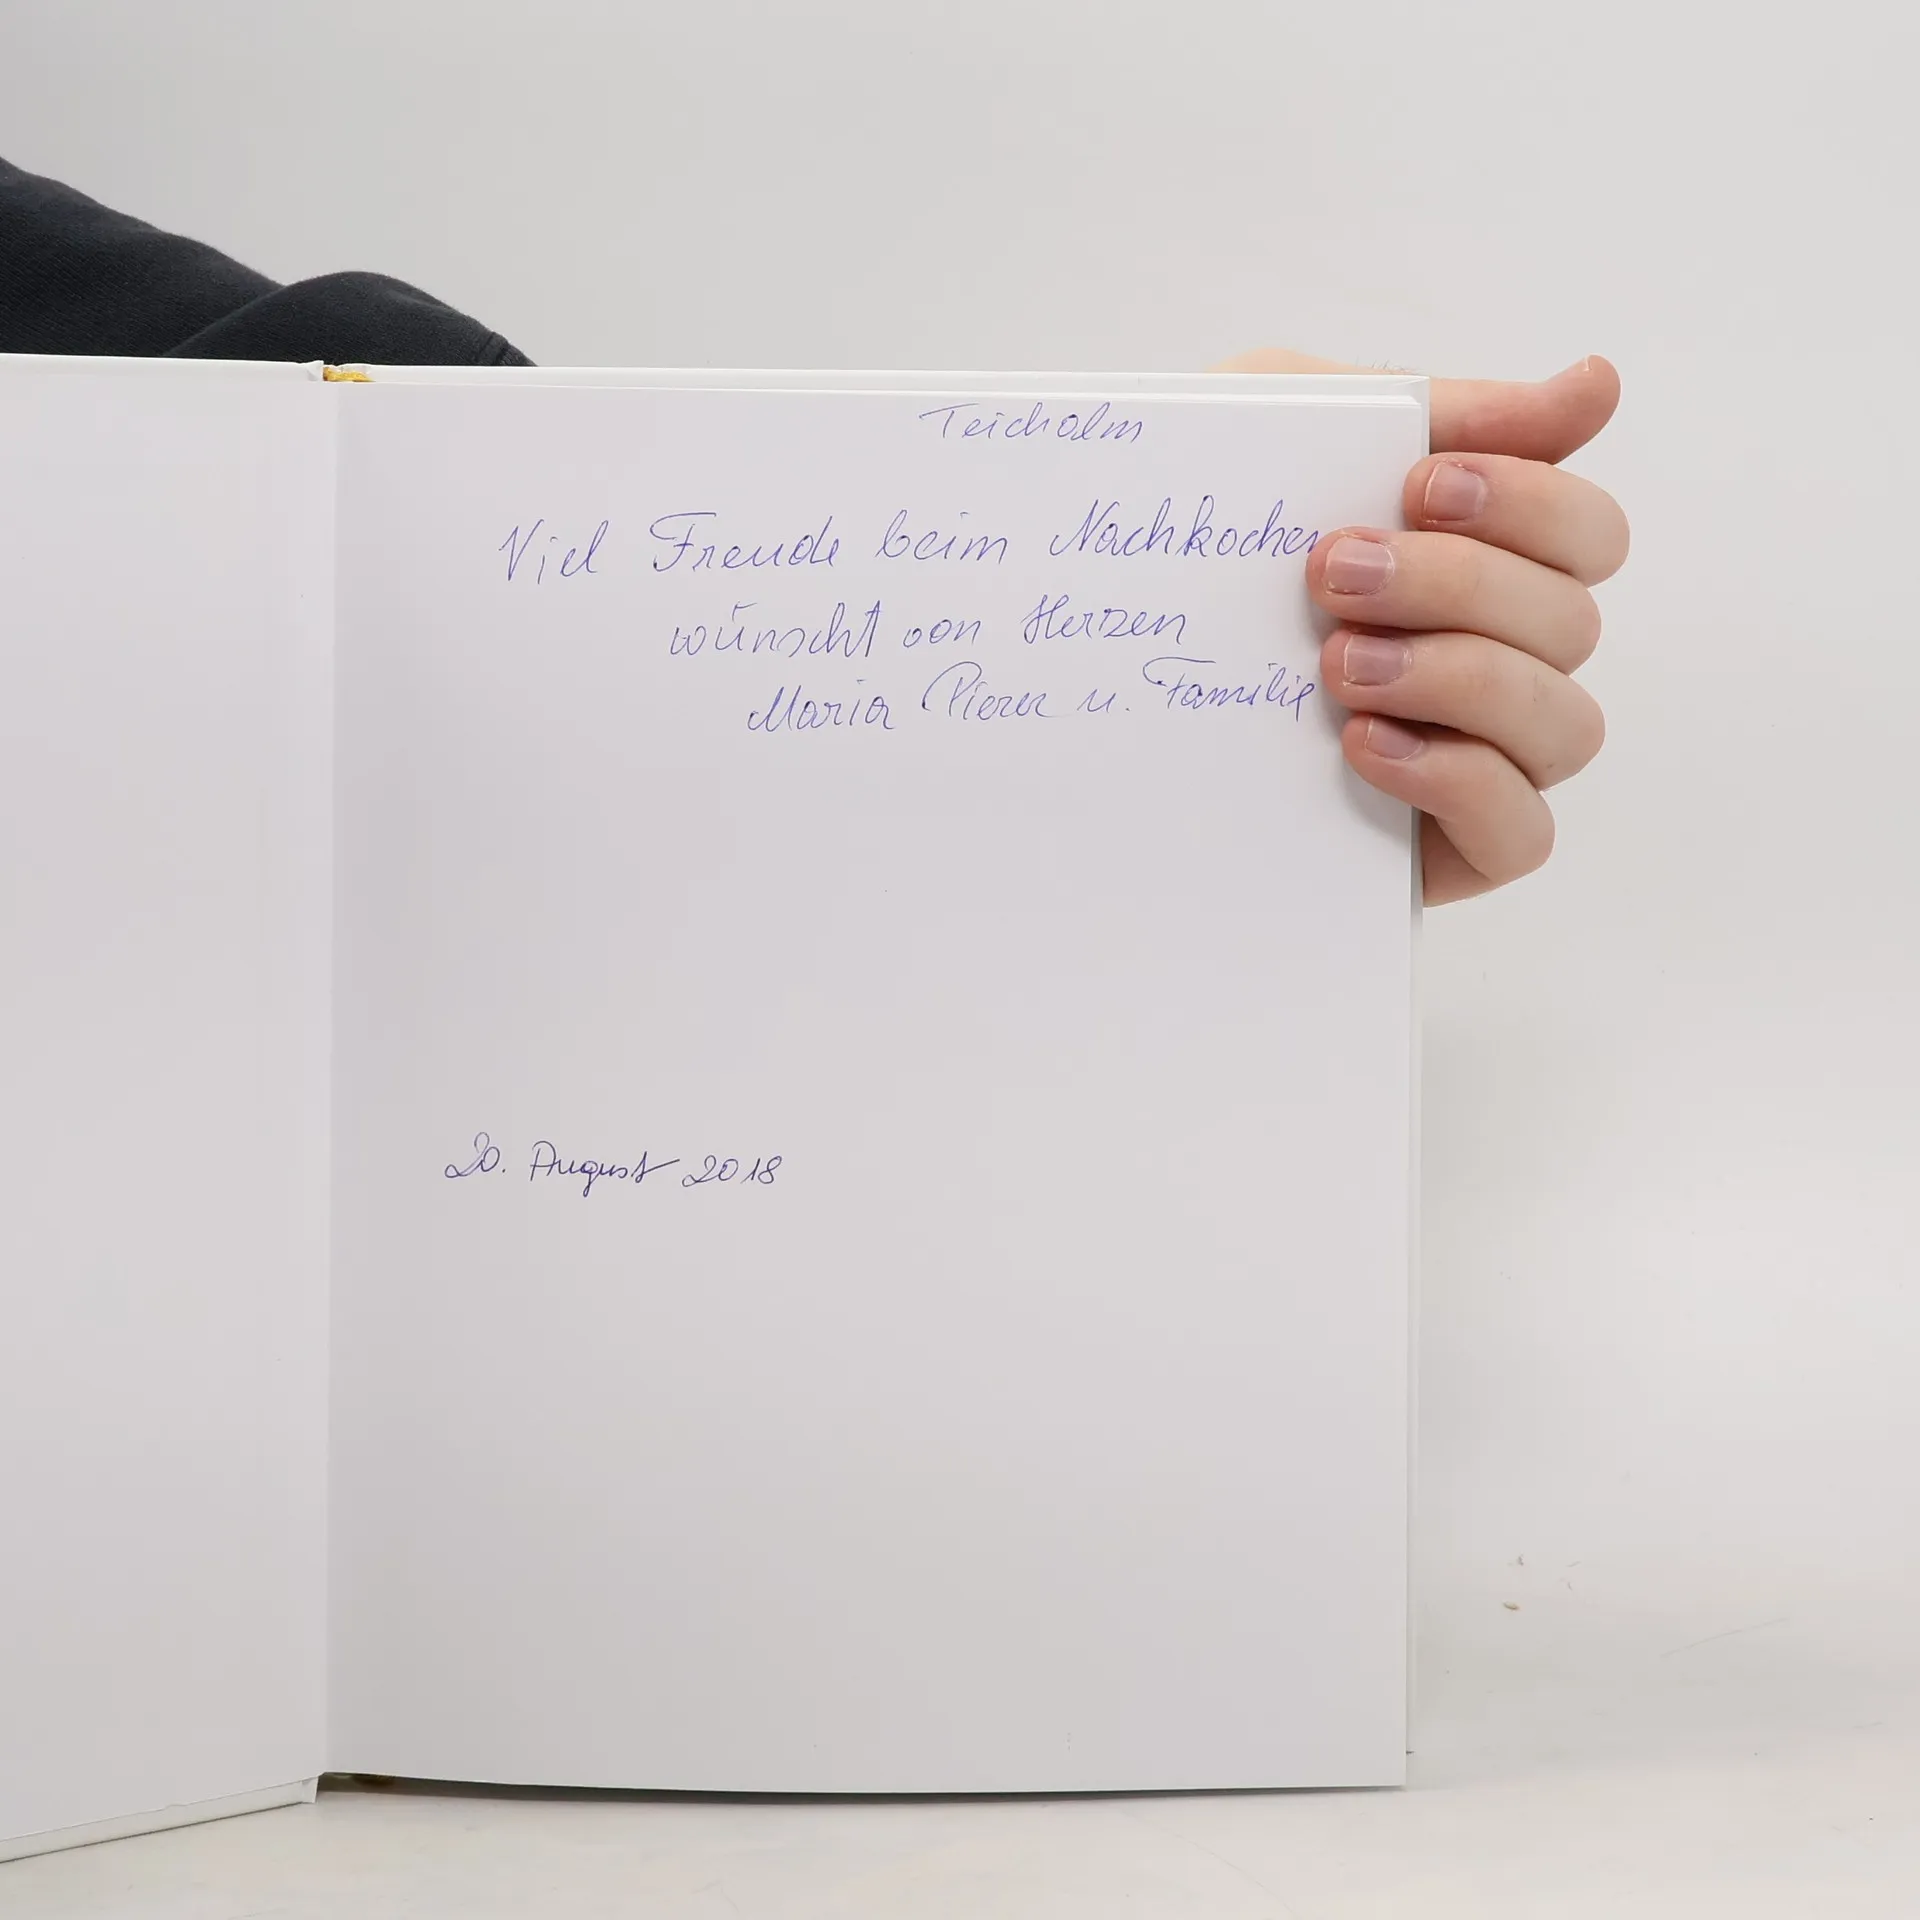 Teichalm
Viel Freude beim Nachkochen
wünscht von Herzen
Maria Pierer u. Familie
20. August 2018